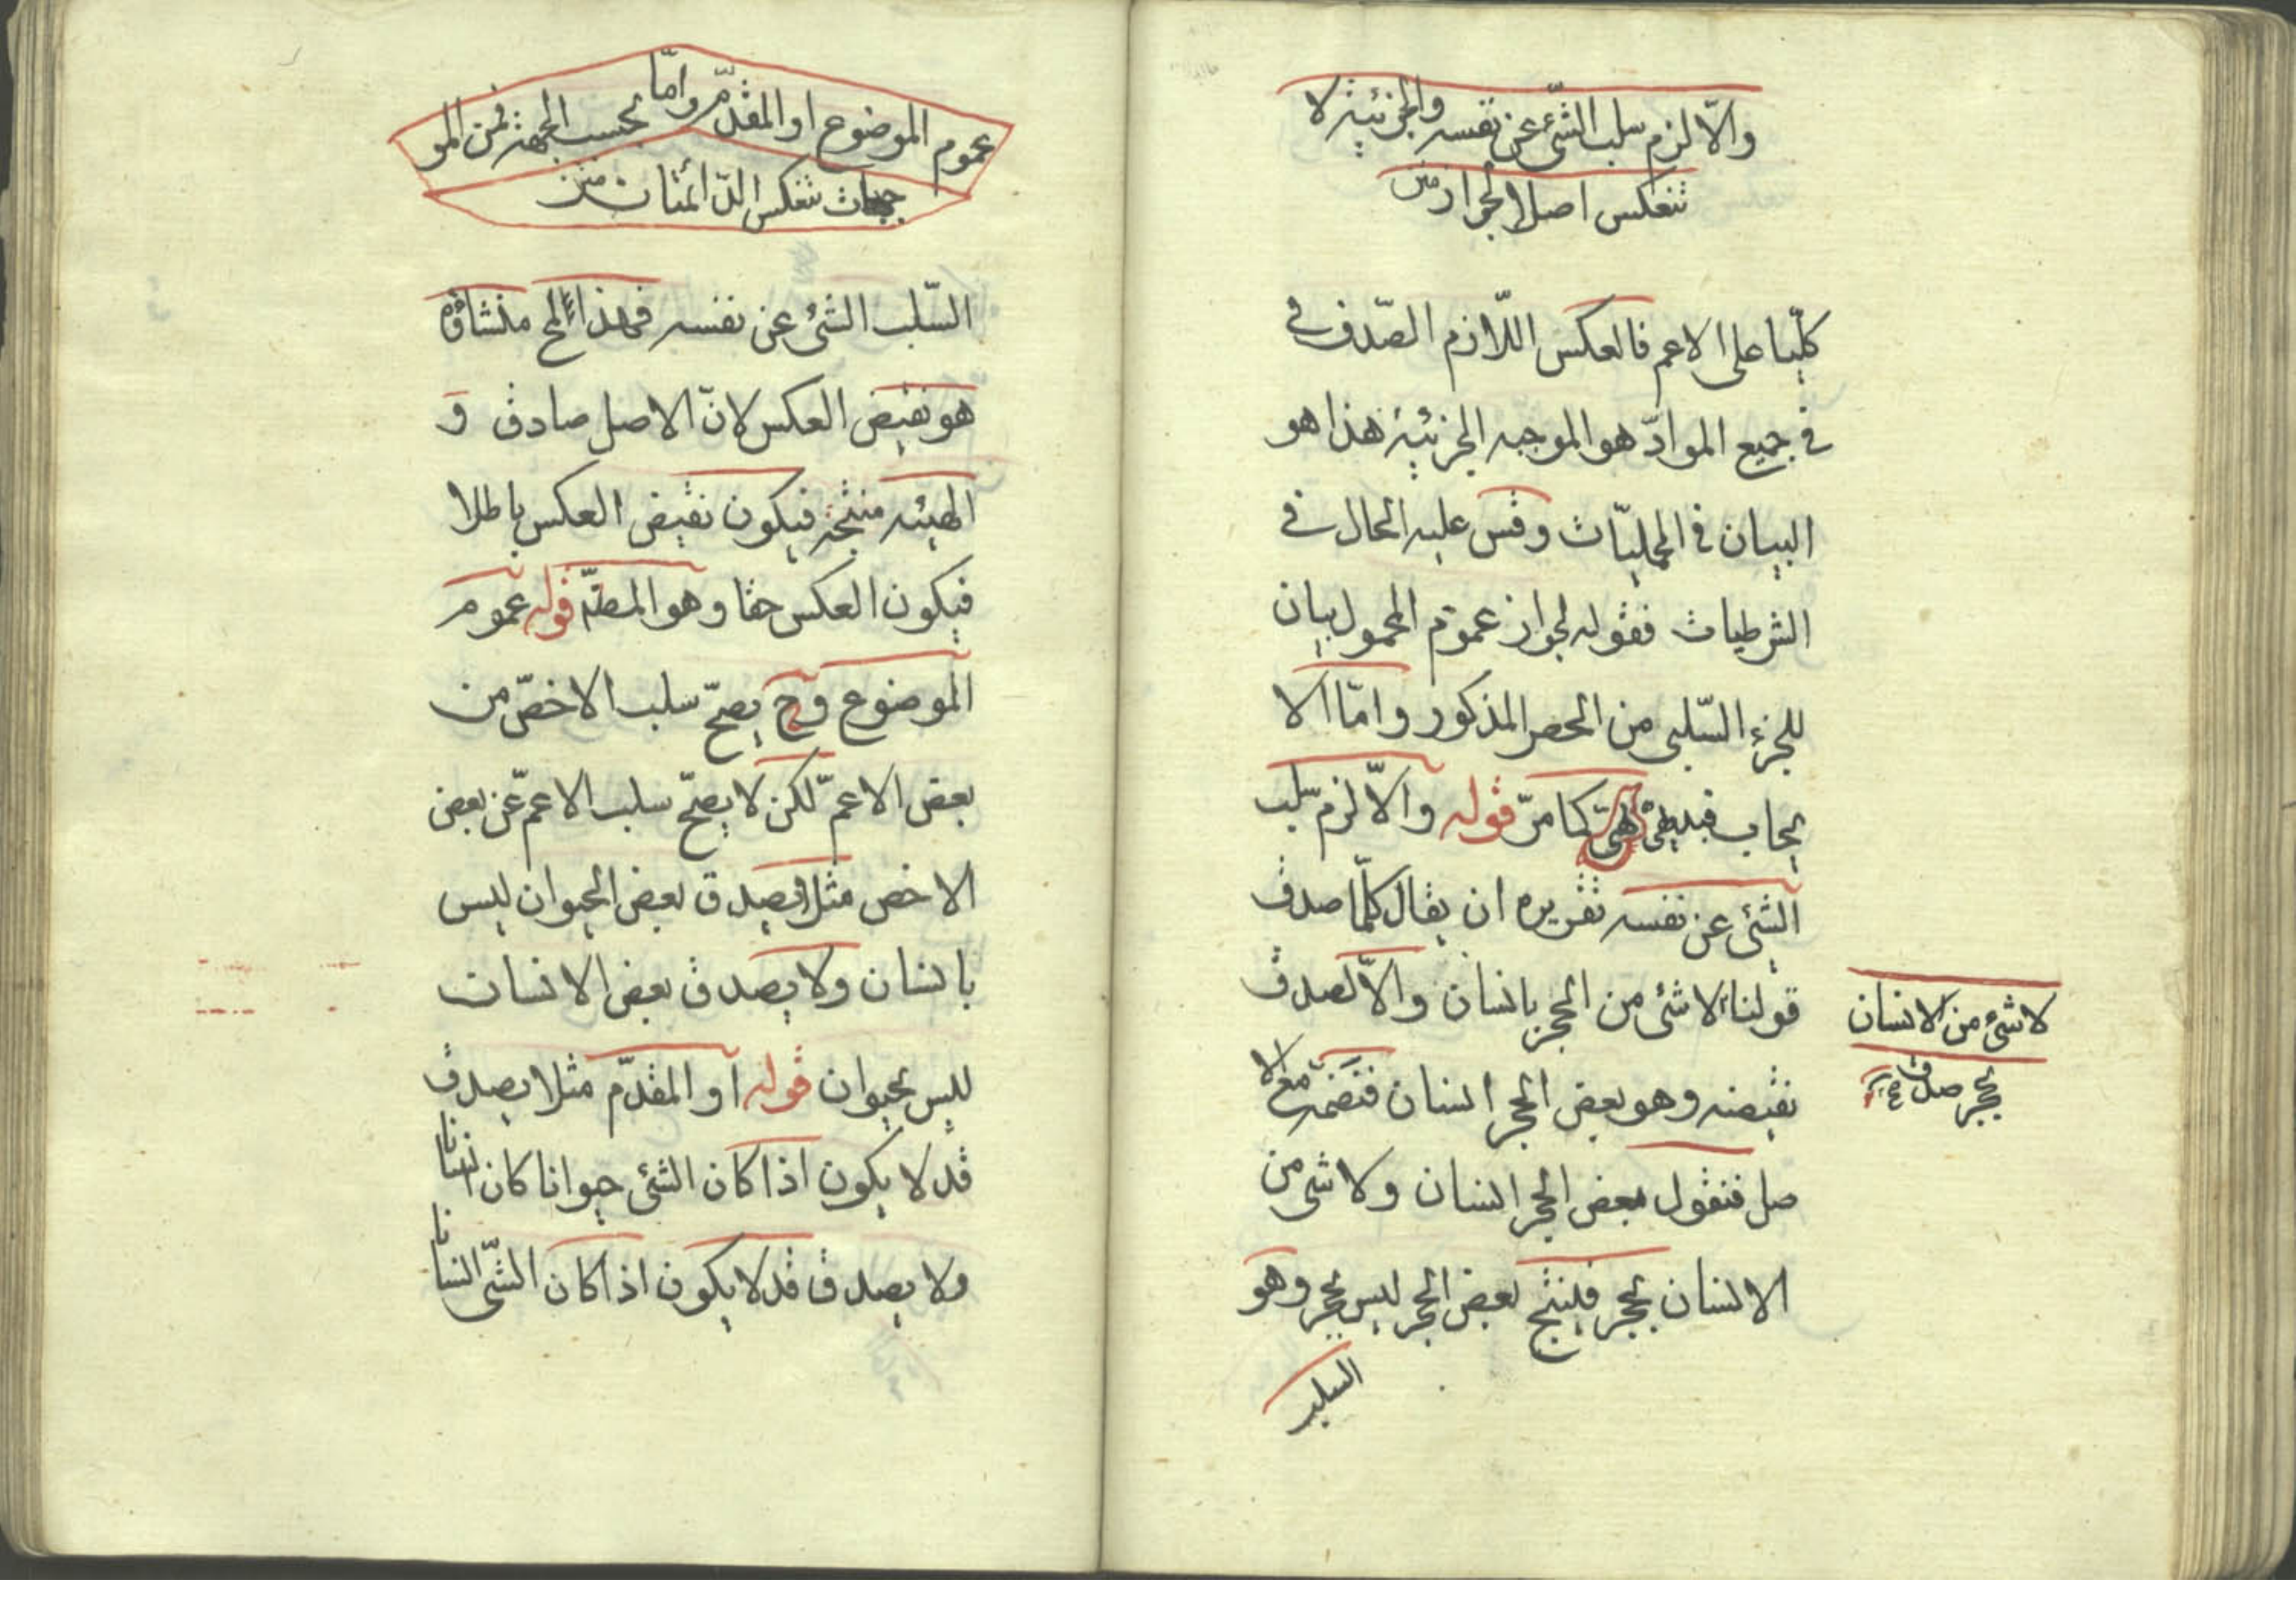 والّا لزم سلب الشّئ عن نفسه والجزئية لا
تنعكس اصلا لجواز متن
كلّيا على الاعم فالعكس اللّازم الصّدق في
في جميع الموادّ هو الموجبه الجزئية هذا هو
البيان في الحمليّات وقس عليه الحال في
الشرطيات فقوله لجواز عموم المحمول بيان
للجزء السّلبي من الحصر المذكور وامّا الا
يجاب فبديهى كما مرّ قوله والّا لزم سلب
الشئ عن نفسه تقريره ان يقال كلّما صدق
قولنا لا شئ من الحجر بانسان والّا لصدق
لا شئ من الانسان
بحجر صدق صح
نقيضه وهو بعض الحجر انسان فنضمّه مع الا
صل فنقول بعض الحجر انسان ولا شئ من
الانسان بحجر فلينتج بعض الحجر ليس بحجر وهو
السلب
عموم الموضوع او المقدّم وامّا بحسب الجهة فمن المو
جبات تنعكس الدّائمتان متن
السّلب الشئ عن نفسه فهذا المح منشاؤه
هو نقيض العكس لانّ الاصل صادق و
الهيئه منتجة فيكون نقيض العكس باطلا
فيكون العكس حقا وهو المط قوله عموم
الموضوع وح يصحّ سلب الاخصّ من
بعض الاعمّ لكن لا يصحّ سلب الاعمّ عن بعض
الاخص مثلا يصدق بعض الحيوان ليس
بانسان ولا يصدق بعض الانسان
ليس بحيوان قوله او المقدّم مثلا يصدق
قد لا يكون اذا كان الشئ حيوانا كان انسانا
ولا يصدق قد لا يكون اذا كان الشّى انسانا